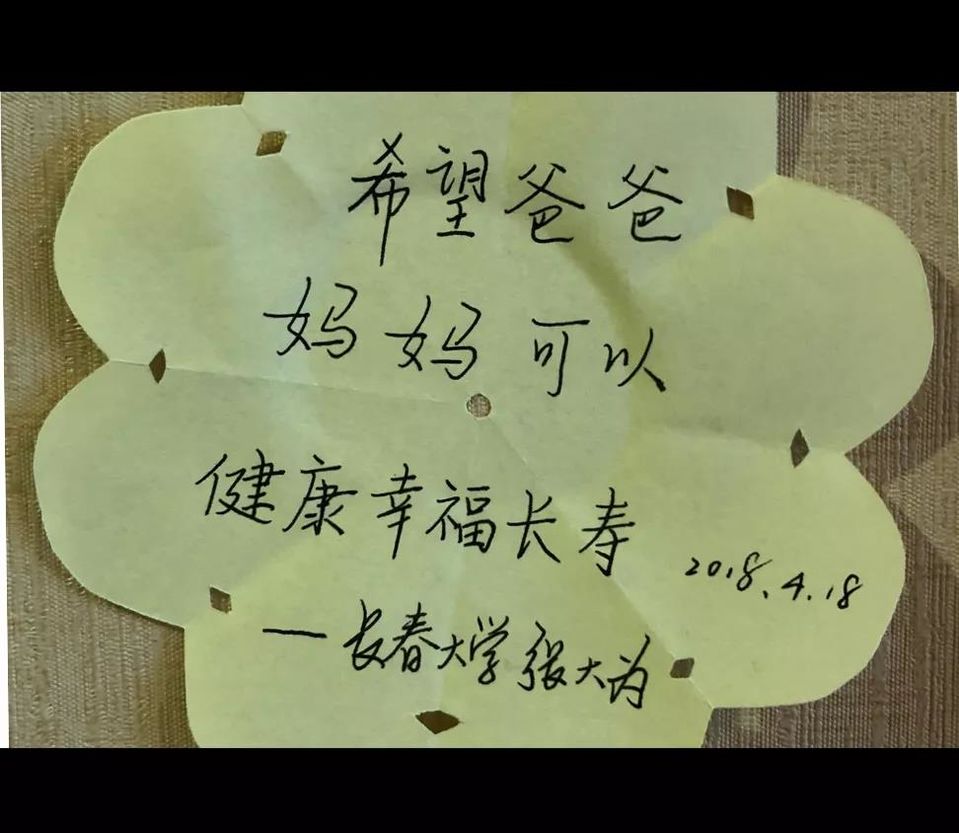 希望爸爸
妈妈可以
健康幸福长寿
2018.4.18
—长春大学张大为